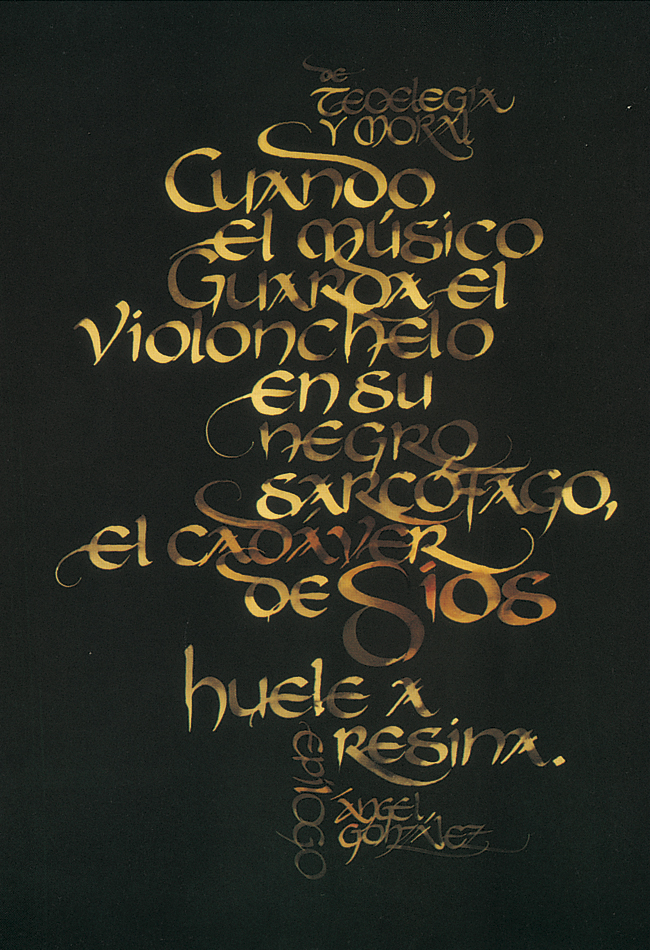 de
Teoelegía
y moral
Cuando
el músico
Guarda el
Violonchelo
en su
negro
sarcófago,
el cadaver
de Dios
huele a
resina.
epílogo
Ángel
González